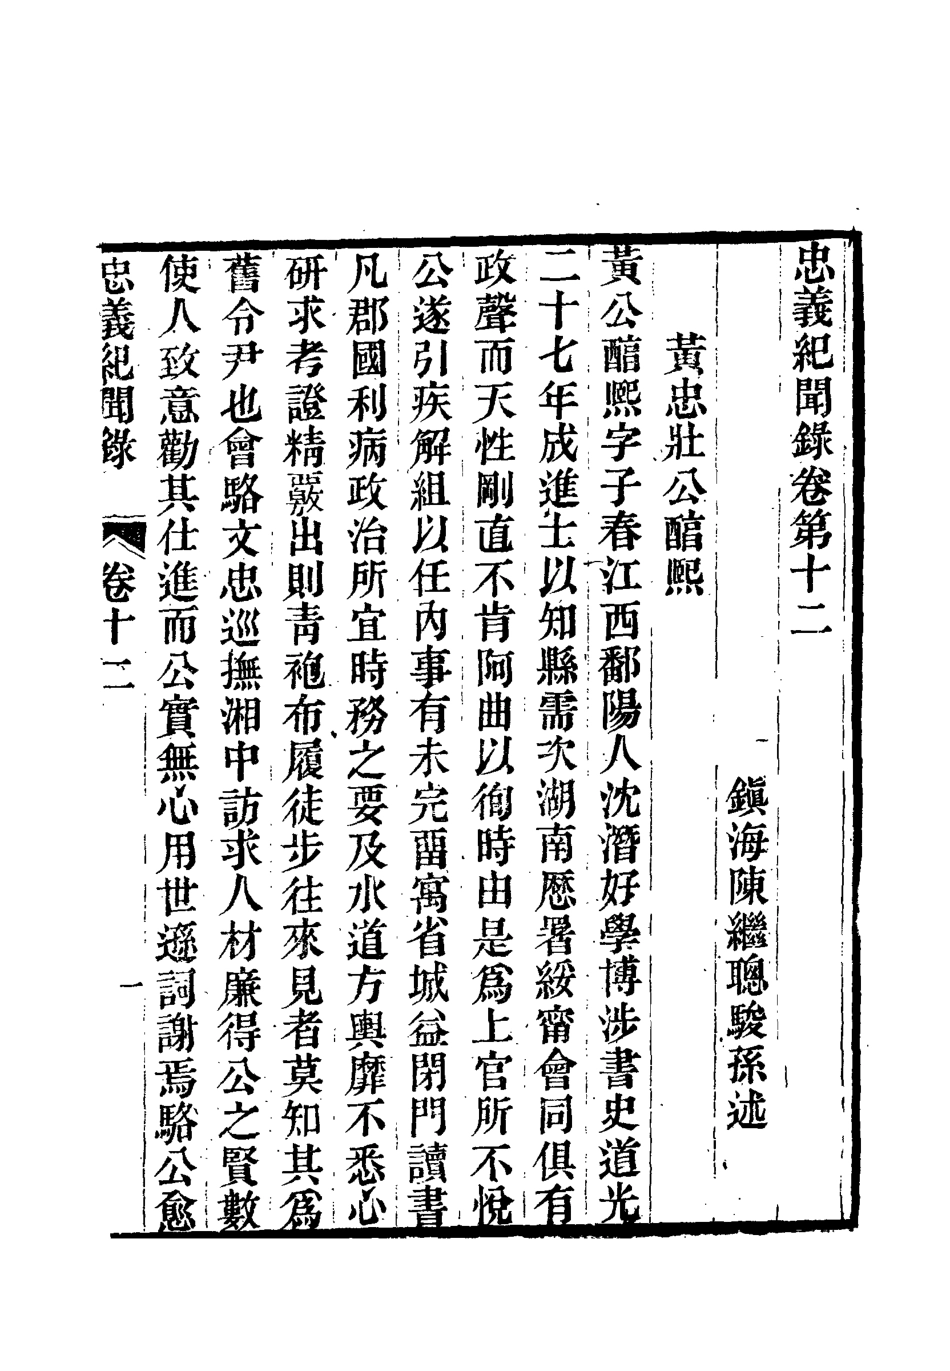 忠義紀聞錄卷第十二
鎭海陳繼聰駿孫述
黃忠壯公醕熙
黃公醕熙字子春江西鄱陽人沈潛好學博涉書史道光
二十七年成進士以知縣需次湖南歷署綏甯會同俱有
政聲而天性剛直不肯阿曲以徇時由是爲上官所不悅
公遂引疾解組以任內事有未完畱寓省城益閉門讀書
凡郡國利病政治所宜時務之要及水道方輿靡不悉心
研求考證精覈出則靑袍布履徒步往來見者莫知其爲
舊令尹也會駱文忠巡撫湘中訪求人材廉得公之賢數
使人致意勸其仕進而公實無心用世遜詞謝焉駱公愈
忠義紀聞錄 卷十二 一